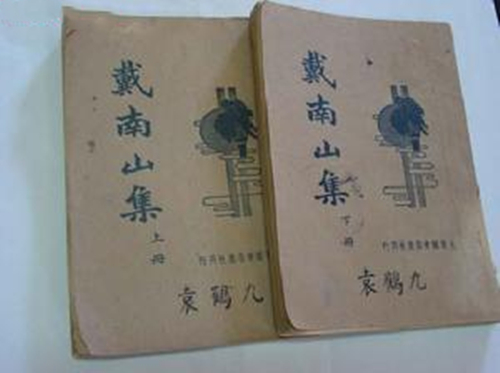 戴南山集
上冊
袁鶴九
戴南山集
下冊
袁鶴九